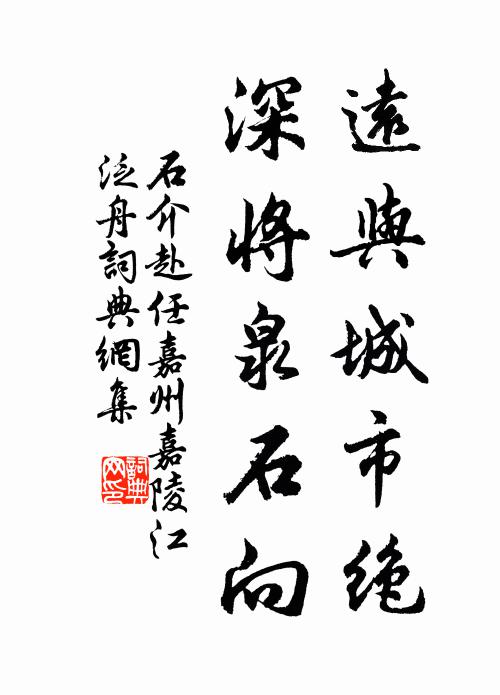 遠與城市絶
深將泉石向
石介赴任嘉州嘉陵江
泛舟詞典網集
詞典
网印